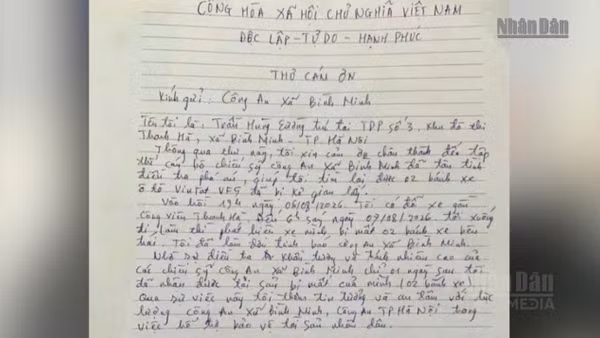 CỘNG HÒA XÃ HỘI CHỦ NGHĨA VIỆT NAM
Nhân Dân
ĐỘC LẬP - TỰ DO - HẠNH PHÚC
THƠ CÁN ƠN
Kính gửi: Công An Xã Bình Minh
Tên tôi là: Trần Hùng Cường trú tại TDP số 3. Khu đô thị
Thanh Hà, xã Bình Minh - TP. Hà Nội
Thông qua thư này, tôi xin cảm ơn chân thành đến tập
thể cán bộ chiến sỹ công An xã Bình Minh đã tận tình
điều tra phá án, giúp tôi tìm lại được 02 bánh xe
ô tô VinFat VF6 đã bị kẻ gian lấy.
Vào hồi 19h ngày 06/08/2026. Tôi có đỗ xe gần
Công viên Thanh Hà. Đến 6h sáng ngày 07/08/2026. tôi xuống
đi làm thì phát hiện xe mình bị mất 02 bánh xe bên
Tôi đã làm đơn trình báo công An xã Bình Minh.
Nhờ sự điều tra khẩn trương và tinh nhiên cao của
các chiến sỹ công An xã Bình Minh chỉ 01 ngày sau tôi
đã nhận được tài sản bị mất của mình (02 bánh xe)
Qua sự việc này tôi thêm tin tưởng và an tâm với lực
lượng công An xã Bình Minh, Công An TP. Hà Nội trong
việc bảo vệ tài sản nhân dân.
Nhân Dân
MEDIA